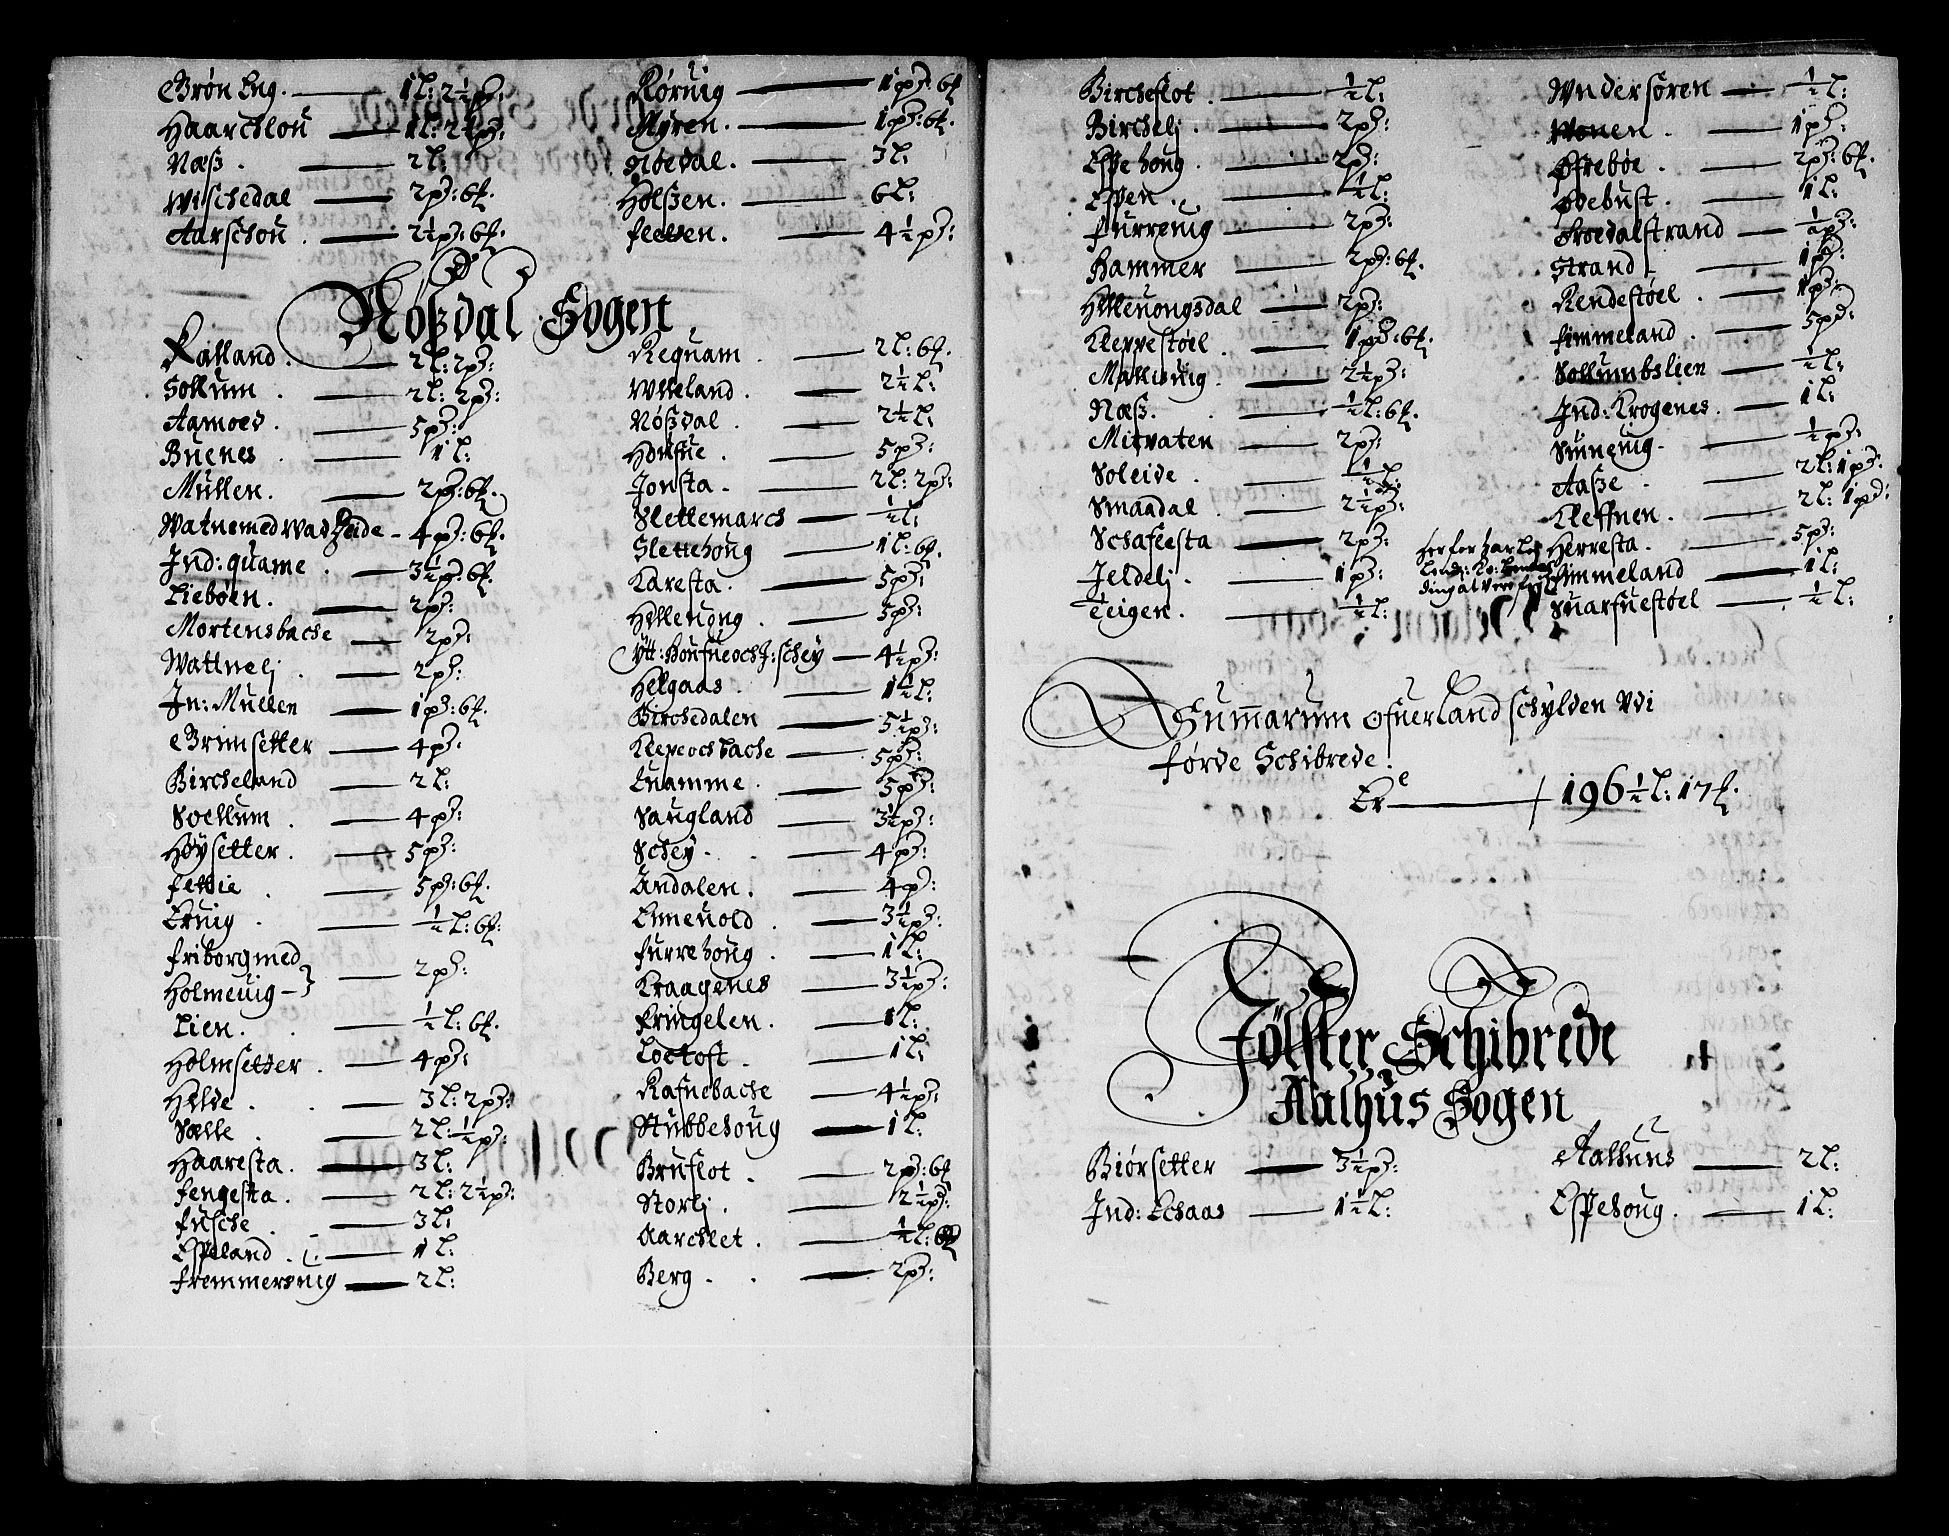 Grøn Eng. 1 L: 2½ pd:
Haarcklou 1 L: 2½ pd:
Næß. 2 L:
Wischedal 2 pd: 6 f.
Aarschou. 2½ pd: 6 f.
Rørvig 1 pd: 6 f.
Myren. 1 pd: 6 f.
Nøedal. 3 L:
Holßen. 6 L:
4½ pd:
Nøßdal Sogen
Kalland. 2 L: 2 pd:
Sollum. 2 L: 2 pd:
Aamoed. 5 pd:
Bnenes. 1 L:
Mullen. 2 pd: 6 f.
Watnemedwadheide 4 pd: 6 f.
Ind: quame. 3½ pd: 6 f.
Liebøen. 2 pd:
Mortensbacke 2 pd:
Wattnelj. 2 pd:
In: Mullen 1 pd: 6 f.
Grimsetter 4 pd:
Bircheland 2 L:
Soellum. 4 pd:
Høysetter. 5 pd:
Fettie. 5 pd: 6 f.
Eruig. ½ L: 6 f.
Friborgmed
Holmeuig 2 pd:
Lien. ½ L: 6 f.
Holmsetter. 4 pd:
Hilde. 3 L: 2 pd:
Sælle. 2 L: ½ pd:
Haaresta. 3 L:
Fengesta. 2 L: 2½ pd:
Fusche. 3 L:
Espeland. 1 L:
Fremmersuig 2 L:
Requam. 2 L: 6 f.
Ulleland. 2½ L:
Nøßdal. 2½ L:
Houfue. 5 pd:
Jonsta. 2 L: 2 pd:
Slettemarck ½ L:
Slettehoug 1 L: 6 f.
Karesta. 5 pd:
Hilleuong. 3 pd:
Ytt: Houfue och J: schey 4½ pd:
Helgaas. 1½ L:
Birchedalen 5½ pd:
Klep och bache 5 pd:
Quamme. 5 pd:
Saugland 3½ pd:
Schey. 4 pd:
Andalen. 4 pd:
Emeuold. 3½ pd:
Furrehoug. 1 L:
Kraagenes 3½ pd:
Fringelen. 1 L:
Loctoft. 1 L:
Rafnebache 4½ pd:
Stubbehoug 1 L:
Bruflot. 2 pd: 6 f
Storlj. 2½ pd:
Aarcklet. ½ L:
Berg. 2 pd:
Bircheflot. ½ L:
Birchelj. 2 pd:
Espehoug. 2 pd:
Espen. ½ L:
Furreuig 2 pd:
Hammer 2 pd: 6 f.
Hilleuongsdal 2 pd:
Kleppestøel. 1 pd: 6 f.
Malleuig. 2½ pd:
Næß. ½ L: 6 f.
Mitvaten 2 pd:
Soleide. ½ L:
Smaadal. 2½ pd:
Schafeesta 2 pd:
Jeldelj. 1 pd:
Teigen. ½ L:
Wndersøren ½ L:
Wonen. 1 pd:
Øfrebøe. 2 pd: 6 f.
Ødebust. 1 L:
Froedalstrand ½ pd:
Strand 1 pd:
Rendestøel. 1 pd:
Fimmeland. 5 pd:
Sollumbslien ½ L:
Ind: Krogenes. 1 L:
Sunneuig. ½ pd:
Aaße. 2 L: 1 pd:
Kleffnen. 2 L: 1 pd:
Herresta. 5 pd:
Fimmeland 1 L:
Suarfuestøel ½ L:
Summarum ofuer Landschylden Vdi
Førde Schibrede.
Er 196½ L: 17 f.
Jølster Schibrede
Aalhus Sogen
Biørsetter 3½ pd:
Ind: Echaas 1½ L:
Aalhuus 2 L:
Espehoug. 1 L: